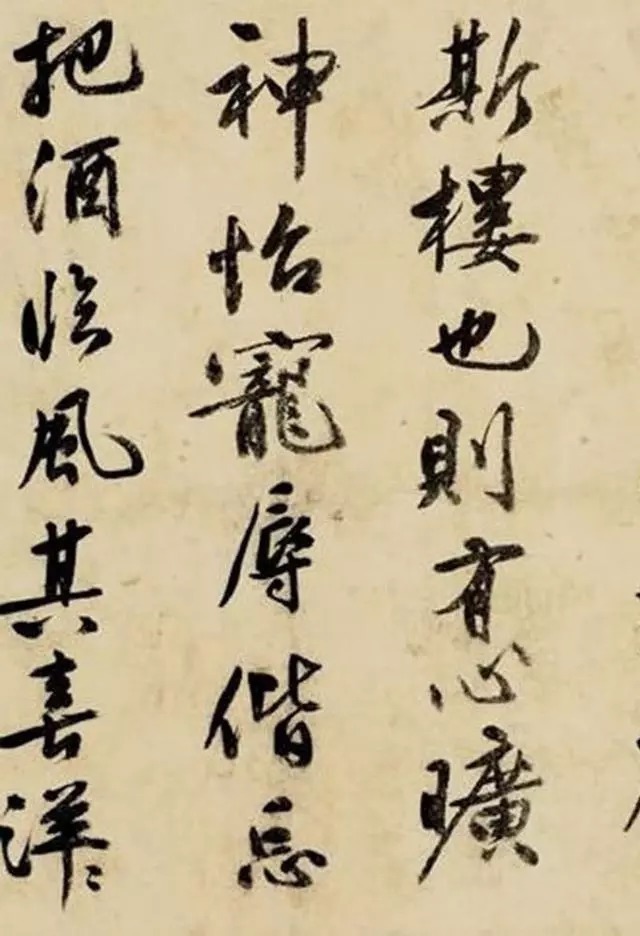 斯樓也則有心曠
神怡寵辱偕忘
把酒临風其喜洋〻